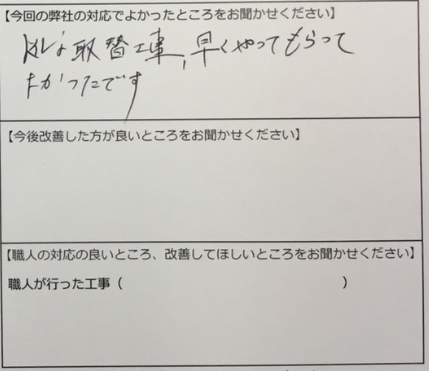 【今回の弊社の対応でよかったところをお聞かせください】
取替工事、早くやってもらって
よかったです
【今後改善した方が良いところをお聞かせください】
【職人の対応の良いところ、改善してほしいところをお聞かせください】
職人が行った工事（　　　　　　　　　　　　　　　　）